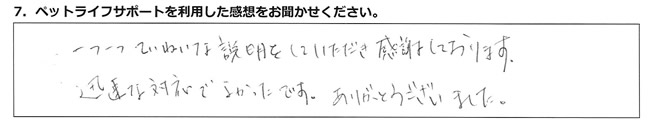 7. ペットライフサポートを利用した感想をお聞かせください。
一つ一つていねいな説明をしていただき感謝をしております。
迅速な対応でよかったです。ありがとうございました。